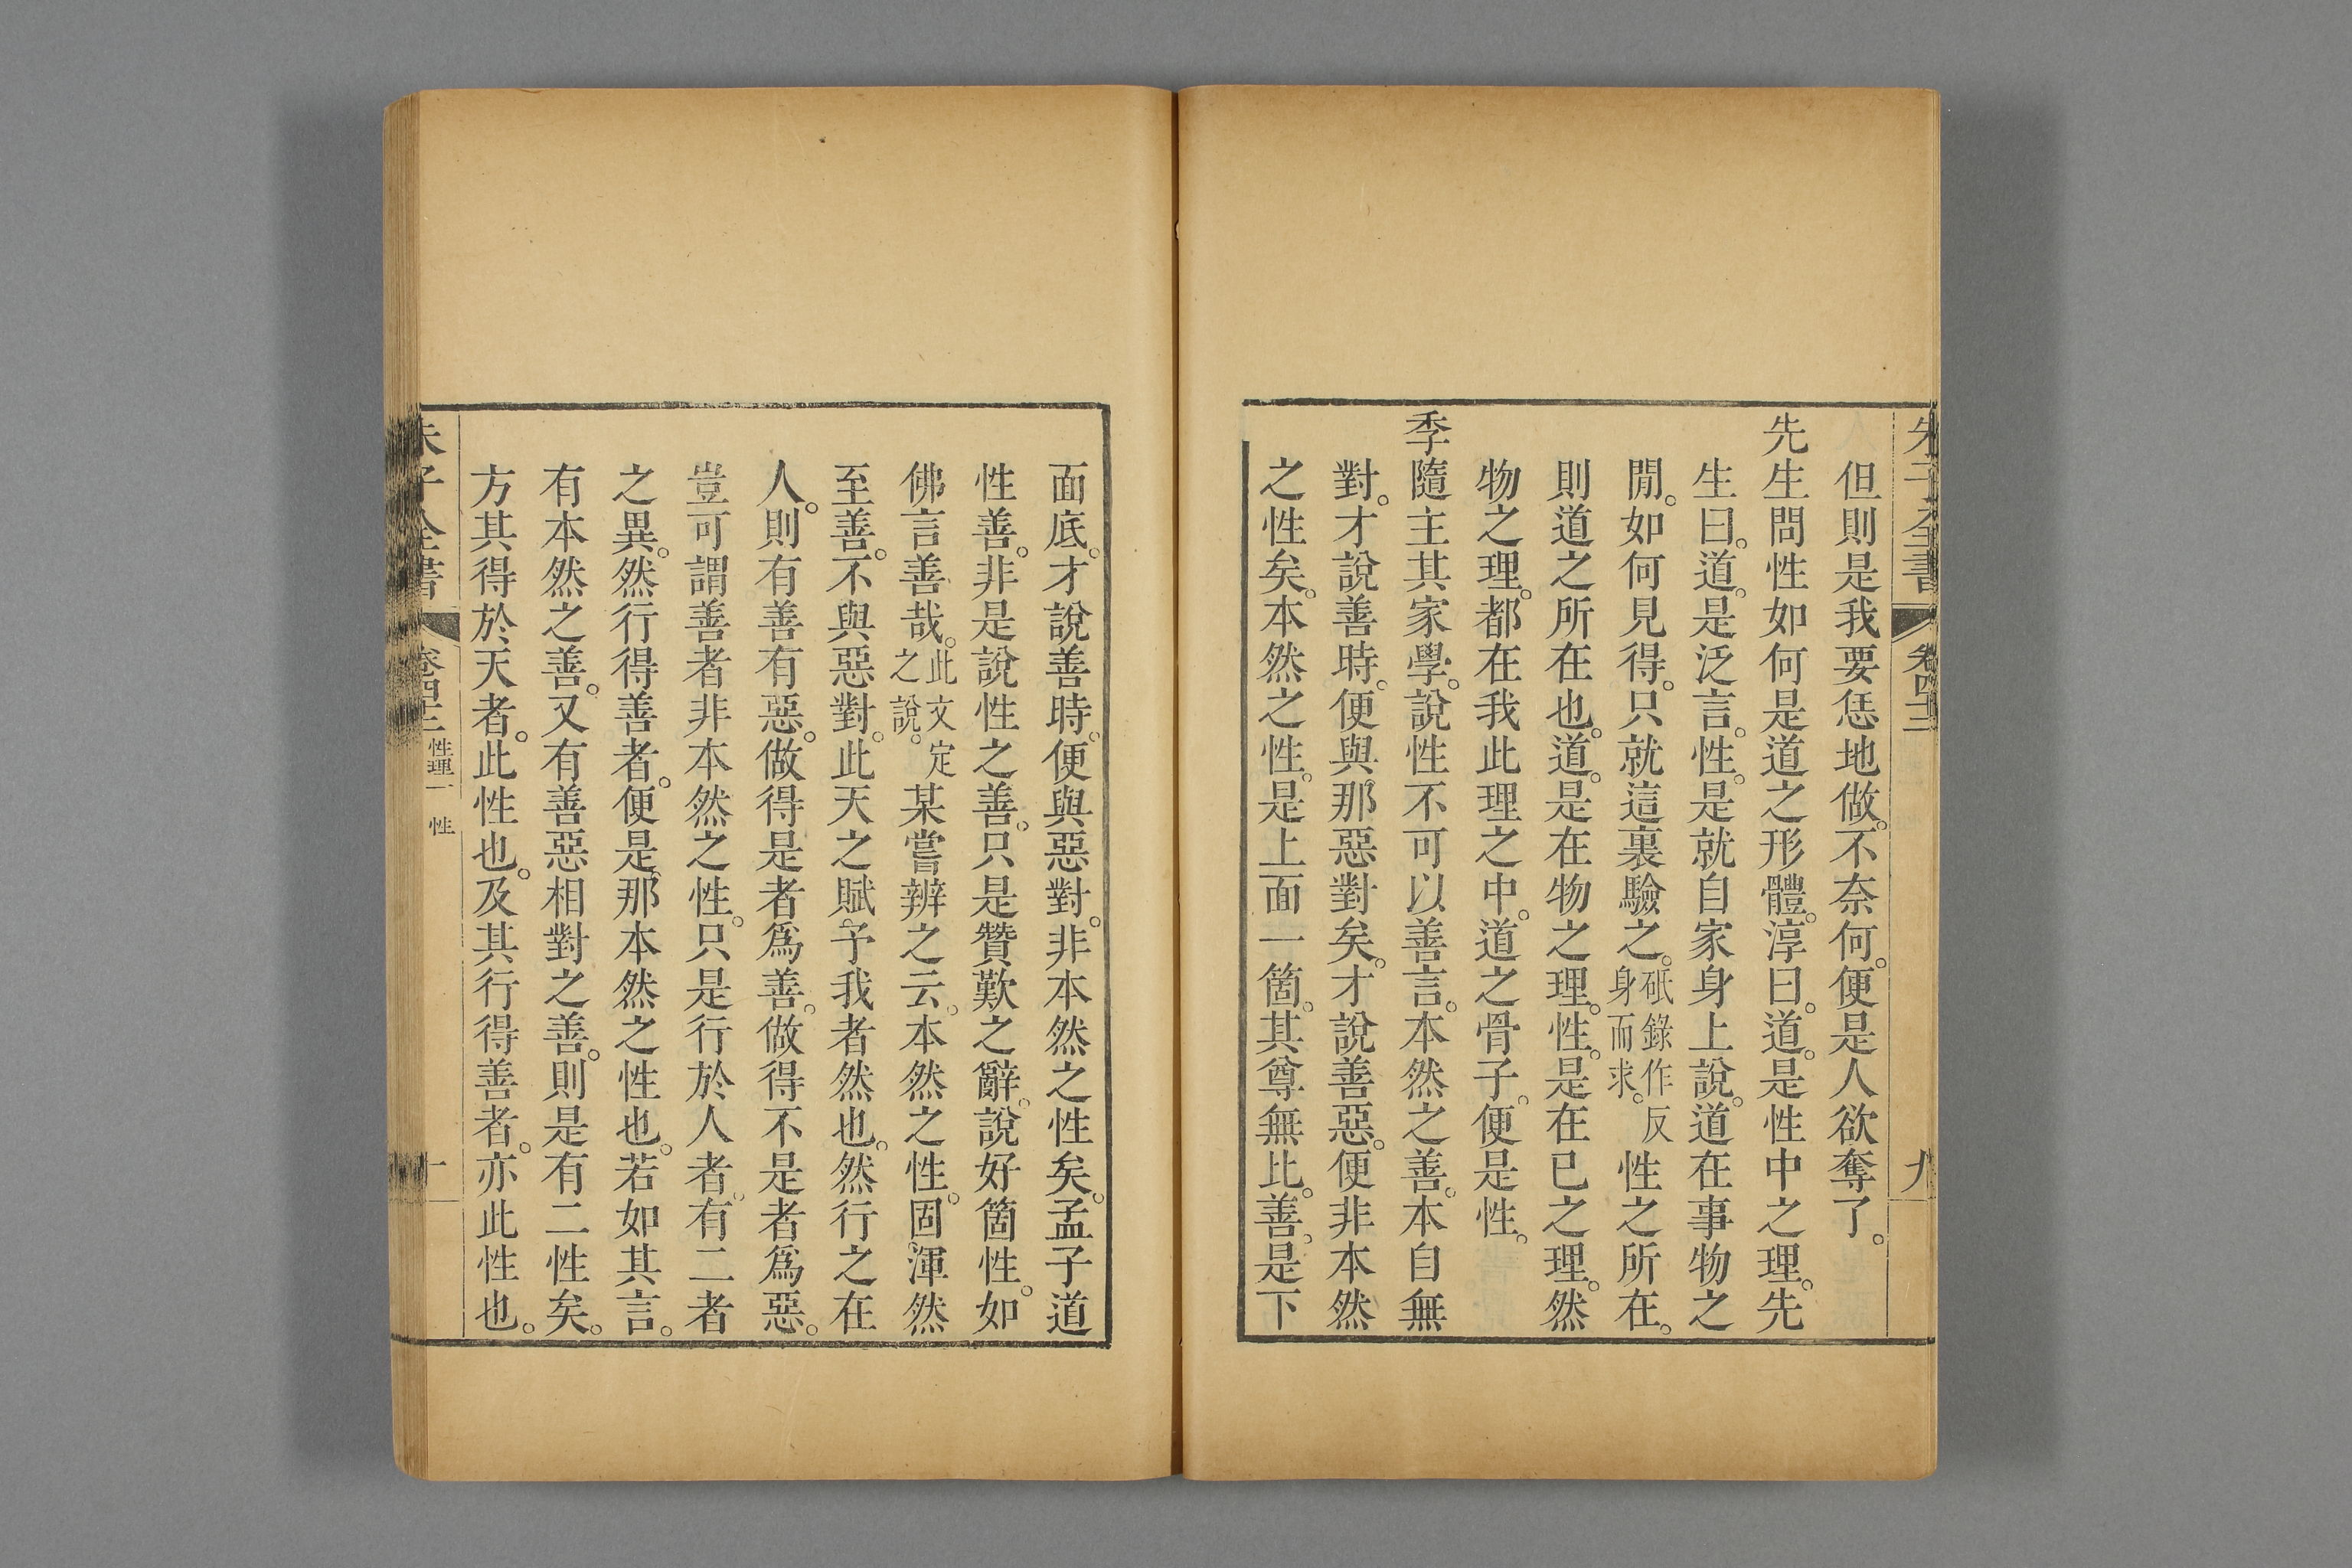 朱子全書 卷四十二 九
但則是我要恁地做。不奈何。便是人欲奪了。
先生問性如何是道之形體。淳曰。道。是性中之理。先
生曰。道。是泛言。性。是就自家身上說。道在事物之
閒。如何見得。只就這裏驗之。砥錄作反身而求。性之所在。
則道之所在也。道。是在物之理。性。是在已之理。然
物之理。都在我此理之中。道之骨子。便是性。
季隨主其家學。說性不可以善言。本然之善。本自無
對。才說善時。便與那惡對矣。才說善惡。便非本然
之性矣。本然之性。是上面一箇。其尊無比。善。是下
面底。才說善時。便與惡對。非本然之性矣。孟子道
性善。非是說性之善。只是贊歎之辭。說好箇性。如
佛言善哉。此文定之說。某嘗辨之云。本然之性。固渾然
至善。不與惡對。此天之賦予我者然也。然行之在
人。則有善有惡。做得是者爲善。做得不是者爲惡。
豈可謂善者非本然之性。只是行於人者。有二者
之異。然行得善者。便是那本然之性也。若如其言。
有本然之善。又有善惡相對之善。則是有二性矣。
方其得於天者。此性也。及其行得善者。亦此性也。
朱子全書 卷四十二 性理一 性 十